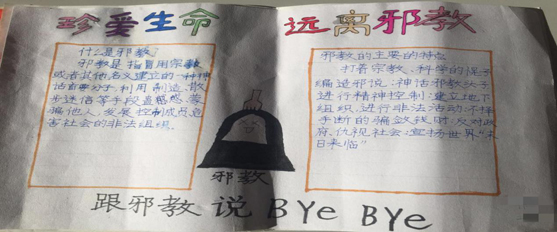 珍爱生命 远离邪教
什么是邪教?
邪教是指冒用宗教
或者其他名义建立的一种神
话首要分子,利用制造、散
步迷信等手段蛊惑、蒙
骗他人,发展、控制成员,危
害社会的非法组织。
邪教
邪教的主要的特点
打着宗教、科学的幌子
编造邪说,神话邪教头子
进行精神控制;建立地下
组织,进行非法活动;不择
手断的骗敛钱财;反对政
府,仇视社会;宣扬世界"末
日来临"
跟邪教说 BYe BYe